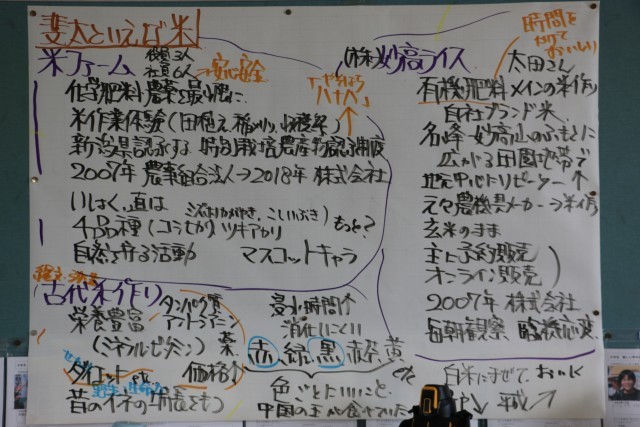 斐太といえば米
米ファーム
役員3人
社員6人
安心安全
化学肥料農薬を最小限に
米作業体験(田植え、稲刈り、収穫祭)
新潟県認承する特別栽培農産物認承取
2007年 農事組合法人→2018年 株式会社
4品種(コシヒカリ ツキアカリ
もっと?
自然を守る活動 マスコットキャラ
「やわはら
八十八」
(株)妙高ライス
太田さん
時間を
かけて
おいしい
有機肥料メインの米作り
自社ブランド米
名峰妙高山のふもとに
広がる田園地帯で
地元中心にリピーター↑
元々農機具メーカー→米作り
玄米のまま
主に予約販売
オンライン販売
2007年 株式会社
毎朝観察 臨機応変
白米にまぜて、おいしく
古代米作り
栄養豊富
(ミネラルビタミン)
タンパク質
アントシアニン
薬
ダイエット etc
価格
昔のイネの特長をもつ
浸水時間
消化しにくい
赤、緑、黒、赤褐、黄 etc
色ごとにいいこと
中国の王が食べていた